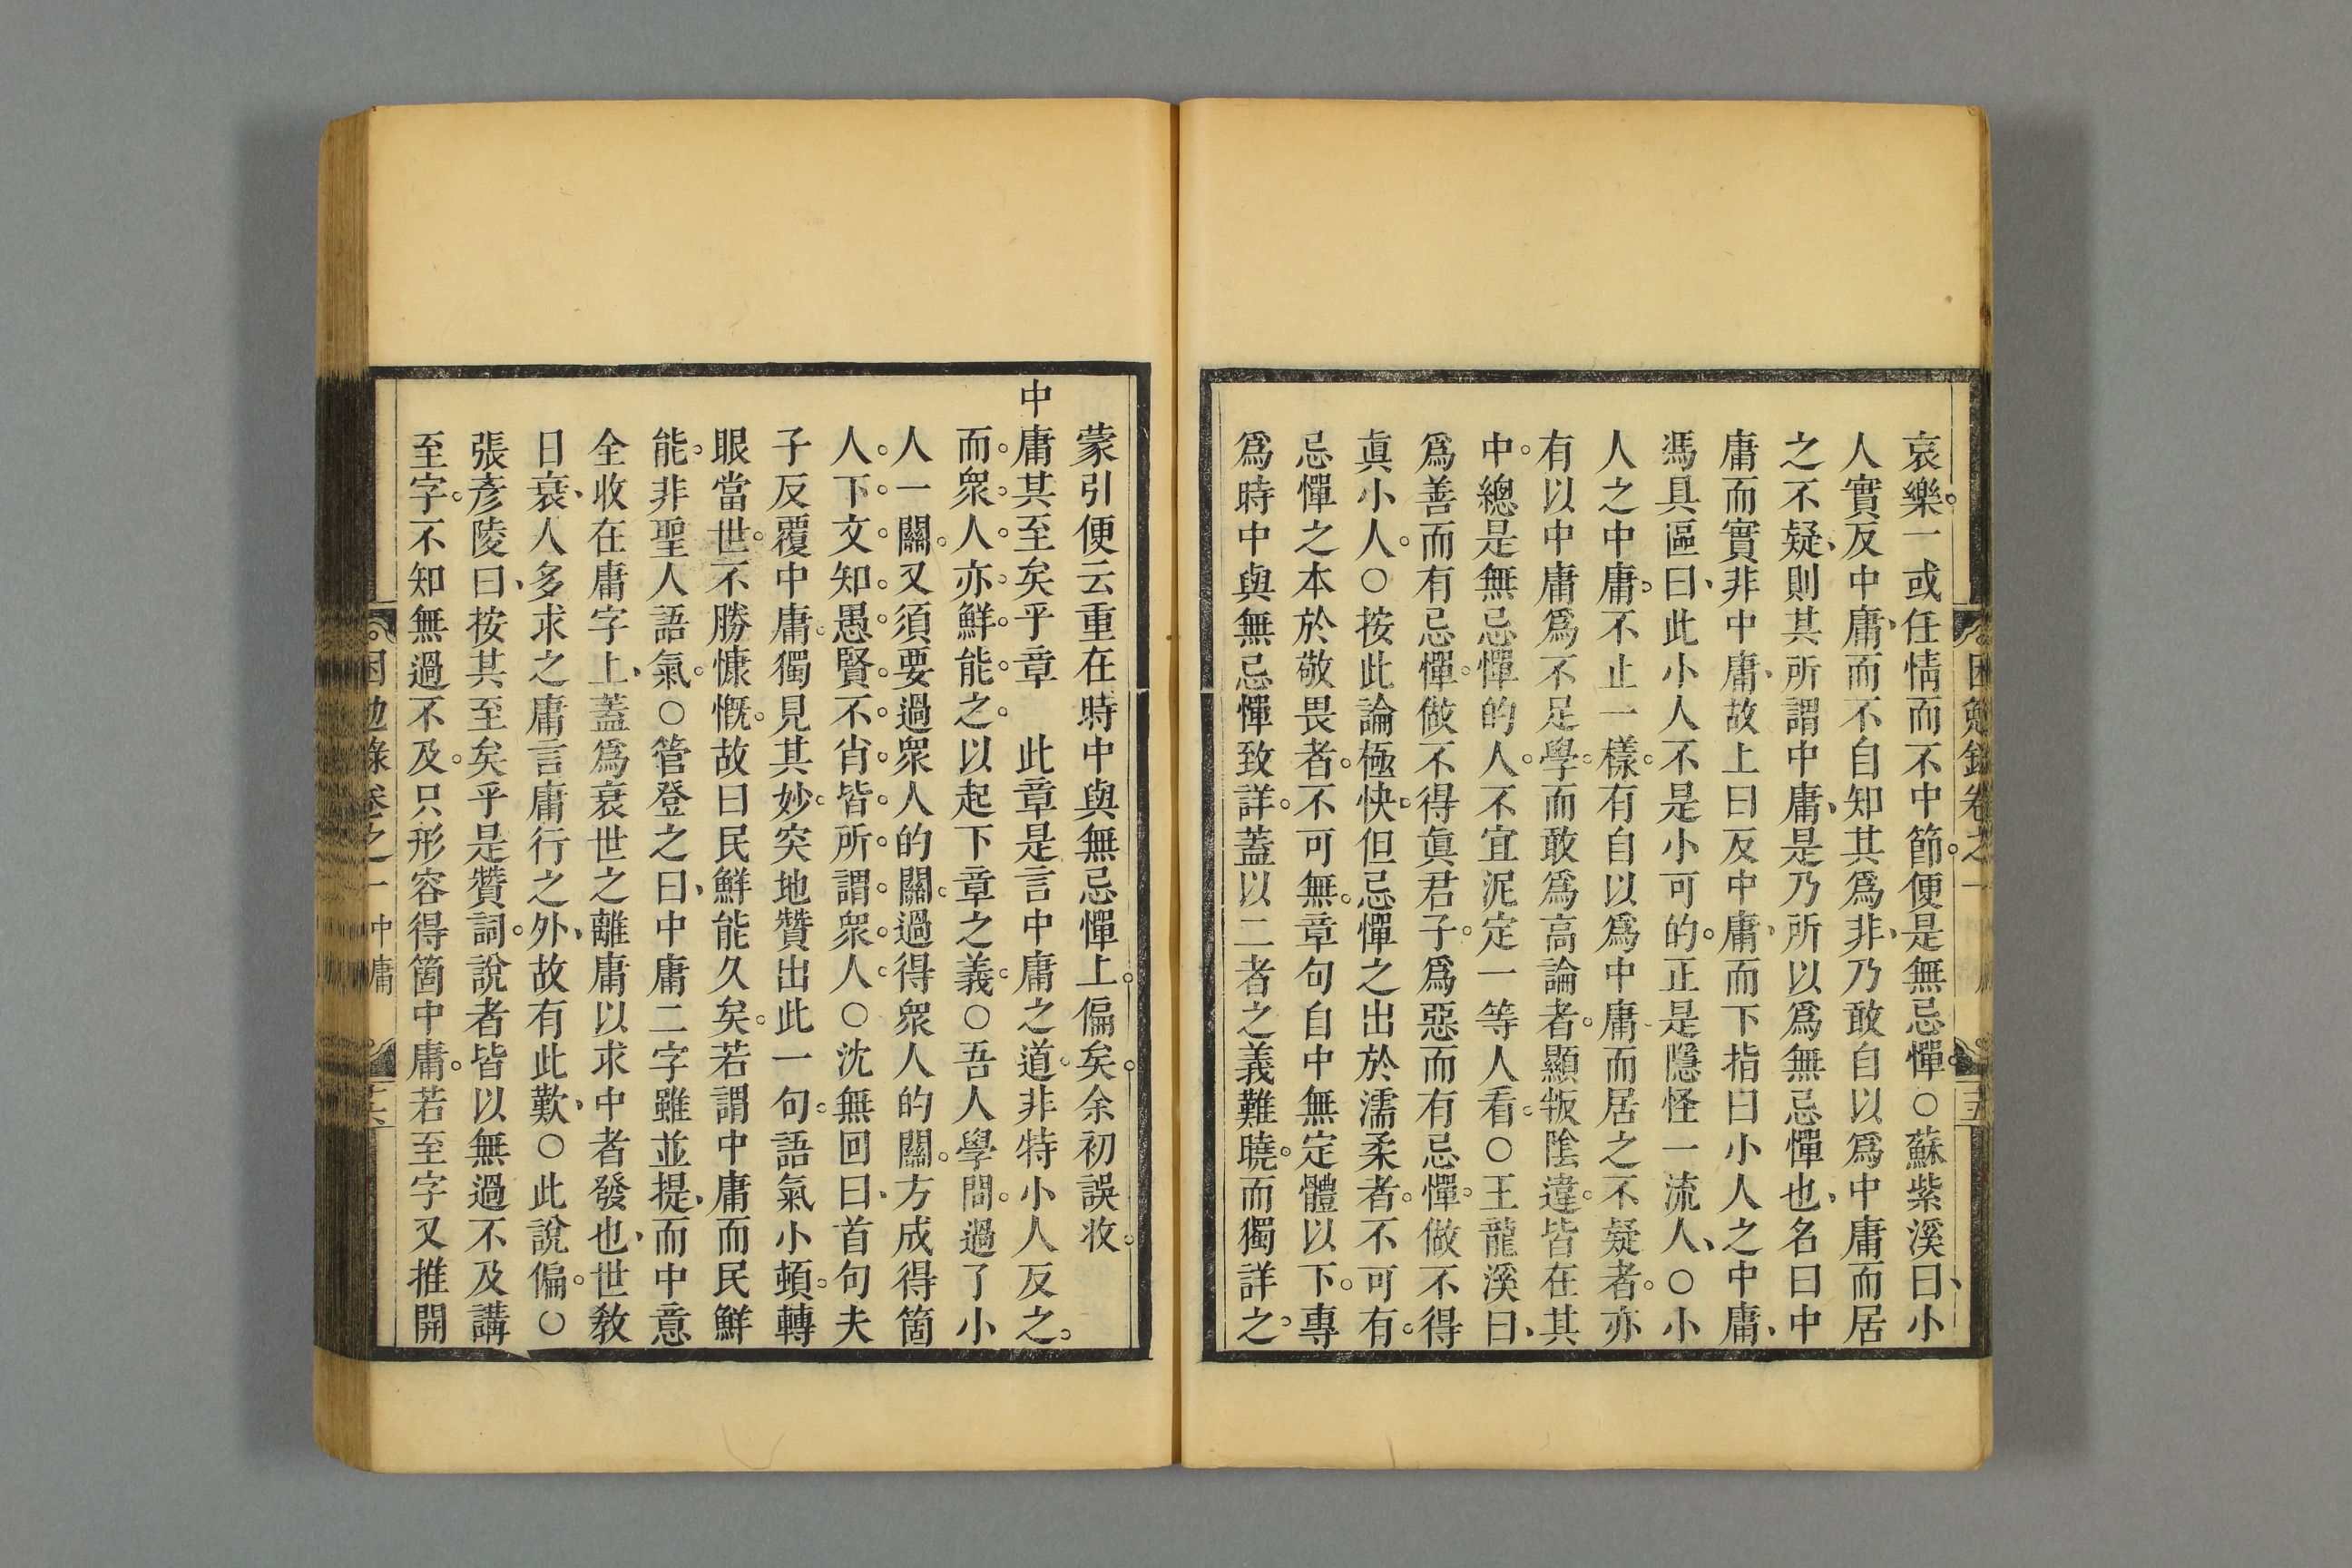 困勉錄卷之一
哀樂。一或任情而不中節。便是無忌憚。○蘇紫溪曰、小
人實反中庸、而不自知其爲非、乃敢自以爲中庸而居
之不疑、則其所謂中庸、是乃所以爲無忌憚也、名曰中
庸而實非中庸、故上曰反中庸、而下指曰小人之中庸、
馮具區曰、此小人不是小可的。正是隱怪一流人、○小
人之中庸。不止一樣。有自以爲中庸而居之不疑者。亦
有以中庸爲不足學。而敢爲高論者。顯叛陰違。皆在其
中。總是無忌憚的人。不宜泥定一等人看。○王龍溪曰、
爲善而有忌憚。做不得眞君子。爲惡而有忌憚。做不得
眞小人。○按此論極快。但忌憚之出於濡柔者。不可有。
忌憚之本於敬畏者。不可無。章句自中無定體以下。專
爲時中與無忌憚致詳。蓋以二者之義難曉。而獨詳之。
蒙引便云重在時中與無忌憚上。偏矣。余初誤收。
中庸其至矣乎章　此章是言中庸之道。非特小人反之。
而。衆。人。亦。鮮。能。之。以起下章之義。○吾人學問。過了小
人一關。又須要過衆人的關。過得衆人的關。方成得箇
人。下。文。知。愚。賢。不。肖。皆。所。謂。衆。人。○沈無回曰、首句夫
子反覆中庸。獨見其妙。突地贊出此一句。語氣小頓。轉
眼當世。不勝慷慨。故曰民鮮能久矣。若謂中庸而民鮮
能。非聖人語氣。○管登之曰、中庸二字雖並提、而中意
全收在庸字上、蓋爲衰世之離庸以求中者發也、世敎
日衰、人多求之庸言庸行之外、故有此歎、○此說偏。○
張彥陵曰、按其至矣乎是贊詞。說者皆以無過不及講
至字。不知無過不及。只形容得箇中庸。若至字又推開
困勉錄卷之一　中庸